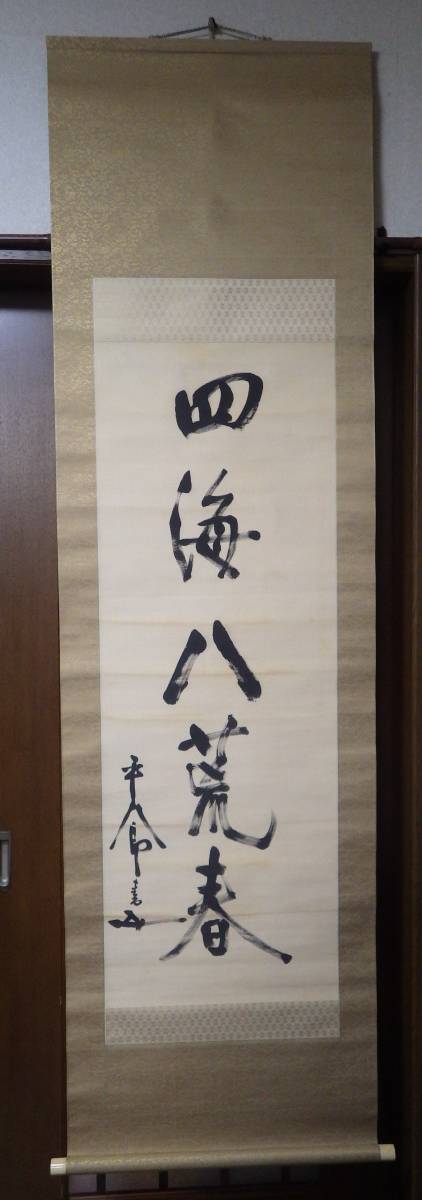 四海八荒春
平八郎書